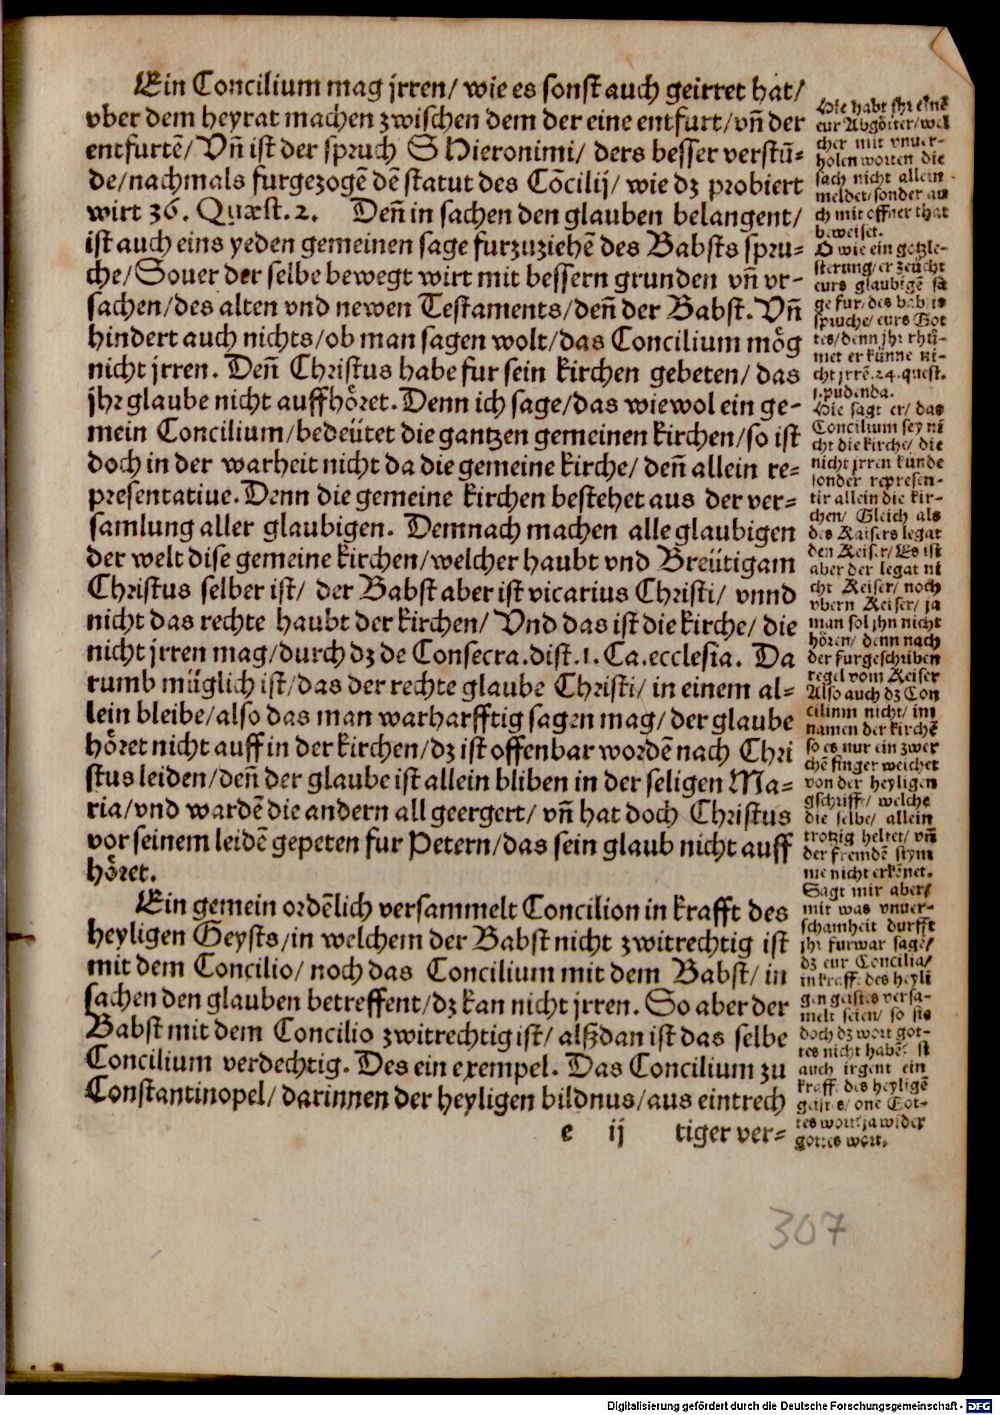 Ein Concilium mag jrren/ wie es sonst auch geirret hat/
vber dem heyrat machen zwischen dem der eine entfurt/ vñ der
entfurtẽ/ Vñ ist der spruch S Hieronimi/ ders besser verstũ-
de/ nachmals furgezogẽ dẽ statut des Cõcilij/ wie dz probiert
wirt 36. Quæst. 2. Deñ in sachen den glauben belangent/
ist auch eins yeden gemeinen sage furzuziehẽ des Babsts spru-
che/ Souer der selbe bewegt wirt mit bessern grunden vñ vr-
sachen/ des alten vnd newen Testaments/ deñ der Babst. Vñ
hindert auch nichts/ ob man sagen wolt/ das Concilium mög
nicht jrren. Deñ Christus habe fur sein kirchen gebeten/ das
jhr glaube nicht auffhöret. Denn ich sage/ das wiewol ein ge-
mein Concilium/ bedeütet die gantzen gemeinen kirchen/ so ist
doch in der warheit nicht da die gemeine kirche/ deñ allein re-
presentatiue. Denn die gemeine kirchen bestehet aus der ver-
samlung aller glaubigen. Demnach machen alle glaubigen
der welt dise gemeine kirchen/ welcher haubt vnd Breütigam
Christus selber ist/ der Babst aber ist vicarius Christi/ vnnd
nicht das rechte haubt der kirchen/ Vnd das ist die kirche/ die
nicht jrren mag/ durch dz de Consecra. dist. 1. Ca. ecclesia. Da
rumb müglich ist/ das der rechte glaube Christi/ in einem al-
lein bleibe/ also das man warharfftig sagen mag/ der glaube
höret nicht auff in der kirchen/ dz ist offenbar wordẽ nach Chri
stus leiden/ deñ der glaube ist allein bliben in der seligen Ma-
ria/ vnd wardẽ die andern all geergert/ vñ hat doch Christus
vor seinem leidẽ gepeten fur Petern/ das sein glaub nicht auff
höret.
Ein gemein ordẽlich versammelt Concilion in krafft des
heyligen Geysts/ in welchem der Babst nicht zwitrechtig ist
mit dem Concilio/ noch das Concilium mit dem Babst/ in
sachen den glauben betreffent/ dz kan nicht jrren. So aber der
Babst mit dem Concilio zwitrechtig ist/ alßdan ist das selbe
Concilium verdechtig. Des ein exempel. Das Concilium zu
Constantinopel/ darinnen der heyligen bildnus/ aus eintrech
e ij tiger ver-
Hie habt jhr eine
eur Abgötter/ wel
cher mit vnuer-
holen worten die
sach nicht allein
meldet/ sonder au
ch mit offner that
beweiset.
O wie ein gotzle-
sterung/ er zeucht
eurs glaubigẽ sa
ge fur/ des babsts
spruche/ eurs Got
tes/ denn jhr rhü-
met er künne ni-
cht jrrẽ. 24. quest.
j. pudenda.
Hie sagt er/ das
Concilium sey ni
cht die kirche/ die
nicht jrren künde
sonder represen-
tir allein die kir-
chen/ Gleich als
des Kaisers legat
den Keiser/ Es ist
aber der legat ni
cht Keiser/ noch
vbern Keiser/ ja
man sol jhn nicht
hören/ denn nach
der furgeschriben
regel vom Keiser
Also auch dz Con
cilium nicht/ im
namen der kirchẽ
so es nur ein zwer
chẽ finger weichet
von der heyligen
gschrifft/ welche
die selbe/ allein
trotzig heltet/ vñ
der fremdẽ stym
me nicht erkẽnet.
Sagt mir aber/
mit was vnuer-
schamheit durfft
jhr furwar sagẽ/
dz eur Concilia/
in krafft des heyli
gen geistes versa-
melt seien/ so sie
doch dz wort got-
tes nicht habẽ/ ist
auch irgent ein
krafft des heyligẽ
geistes/ one Got-
tes wort/ ja wider
gottes wort.
307
Digitalisierung gefördert durch die Deutsche Forschungsgemeinschaft - DFG